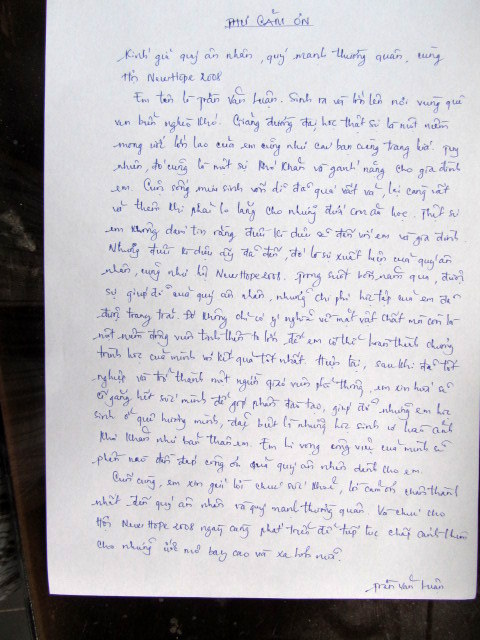 THƯ CẢM ƠN
Kính gửi quý ân nhân, quý mạnh thường quân, cùng
Hội NewHope 2008
Em tên là Trần Văn Luân. Sinh ra và lớn lên nơi vùng quê
ven biển nghèo khó. Giảng đường đại học thật sự là một niềm
mong ước lớn lao của em cũng như các bạn cùng trang lứa. Tuy
nhiên, đó cũng là một sự khó khăn và gánh nặng cho gia đình
em. Cuộc sống mưu sinh vốn dĩ đã quá vất vả, lại càng vất
vả thêm khi phải lo lắng cho những đứa con ăn học. Thật sự
em không dám tin rằng điều kì diệu sẽ đến với em và gia đình
Nhưng điều kì diệu ấy đã đến, đó là sự xuất hiện của quý ân
nhân, cũng như hội NewHope 2008. Trong suốt bốn năm qua, được
sự giúp đỡ của quý ân nhân, những chi phí học tập của em đã
được trang trải. Đó không chỉ có ý nghĩa về mặt vật chất mà còn là
một niềm động viên tinh thần to lớn để em có thể hoàn thành chương
trình học của mình với kết quả tốt nhất. Hiện tại, sau khi đã tốt
nghiệp và trở thành một người giáo viên phổ thông, em xin hứa sẽ
cố gắng hết sức mình để góp phần đào tạo, giúp đỡ những em học
sinh ở quê hương mình, đặc biệt là những học sinh có hoàn cảnh
khó khăn như bản thân em. Em hi vọng công việc của mình sẽ
phần nào đền đáp công ơn quý ân nhân dành cho em.
Cuối cùng, em xin gửi lời chúc sức khoẻ, lời cảm ơn chân thành
nhất đến quý ân nhân và quý mạnh thường quân. Và chúc cho
Hội New Hope 2008 ngày càng phát triển để tiếp tục chắp cánh thêm
cho những ước mơ bay cao và xa hơn nữa.
Trần Văn Luân